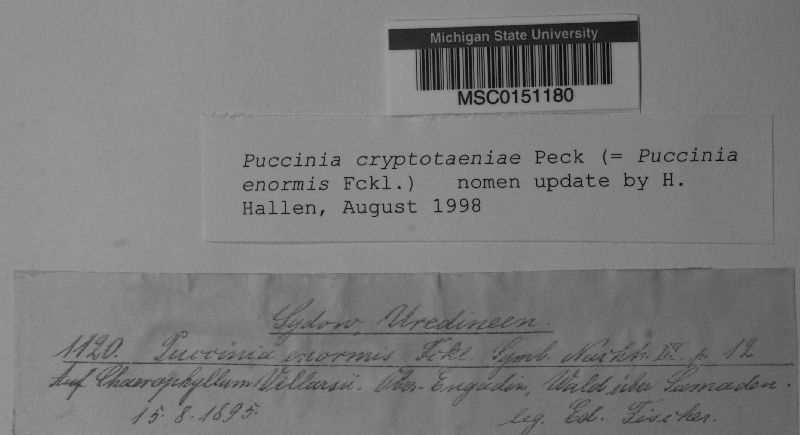 Michigan State University
MSC0151180
Puccinia cryptotaeniae Peck (= Puccinia
enormis Fckl.) nomen update by H.
Hallen, August 1998
Sydow, Uredineen.
1120. Puccinia enormis Fckl. Symb. Nachtr. III. p. 12
Auf Chaerophyllum Villarsii. Ober-Engadin, Wald über Samaden.
15. 8. 1895. leg. Ed. Fischer.